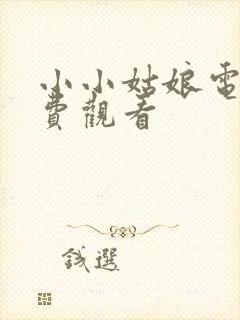 小小姑娘電
費觀看
錢選